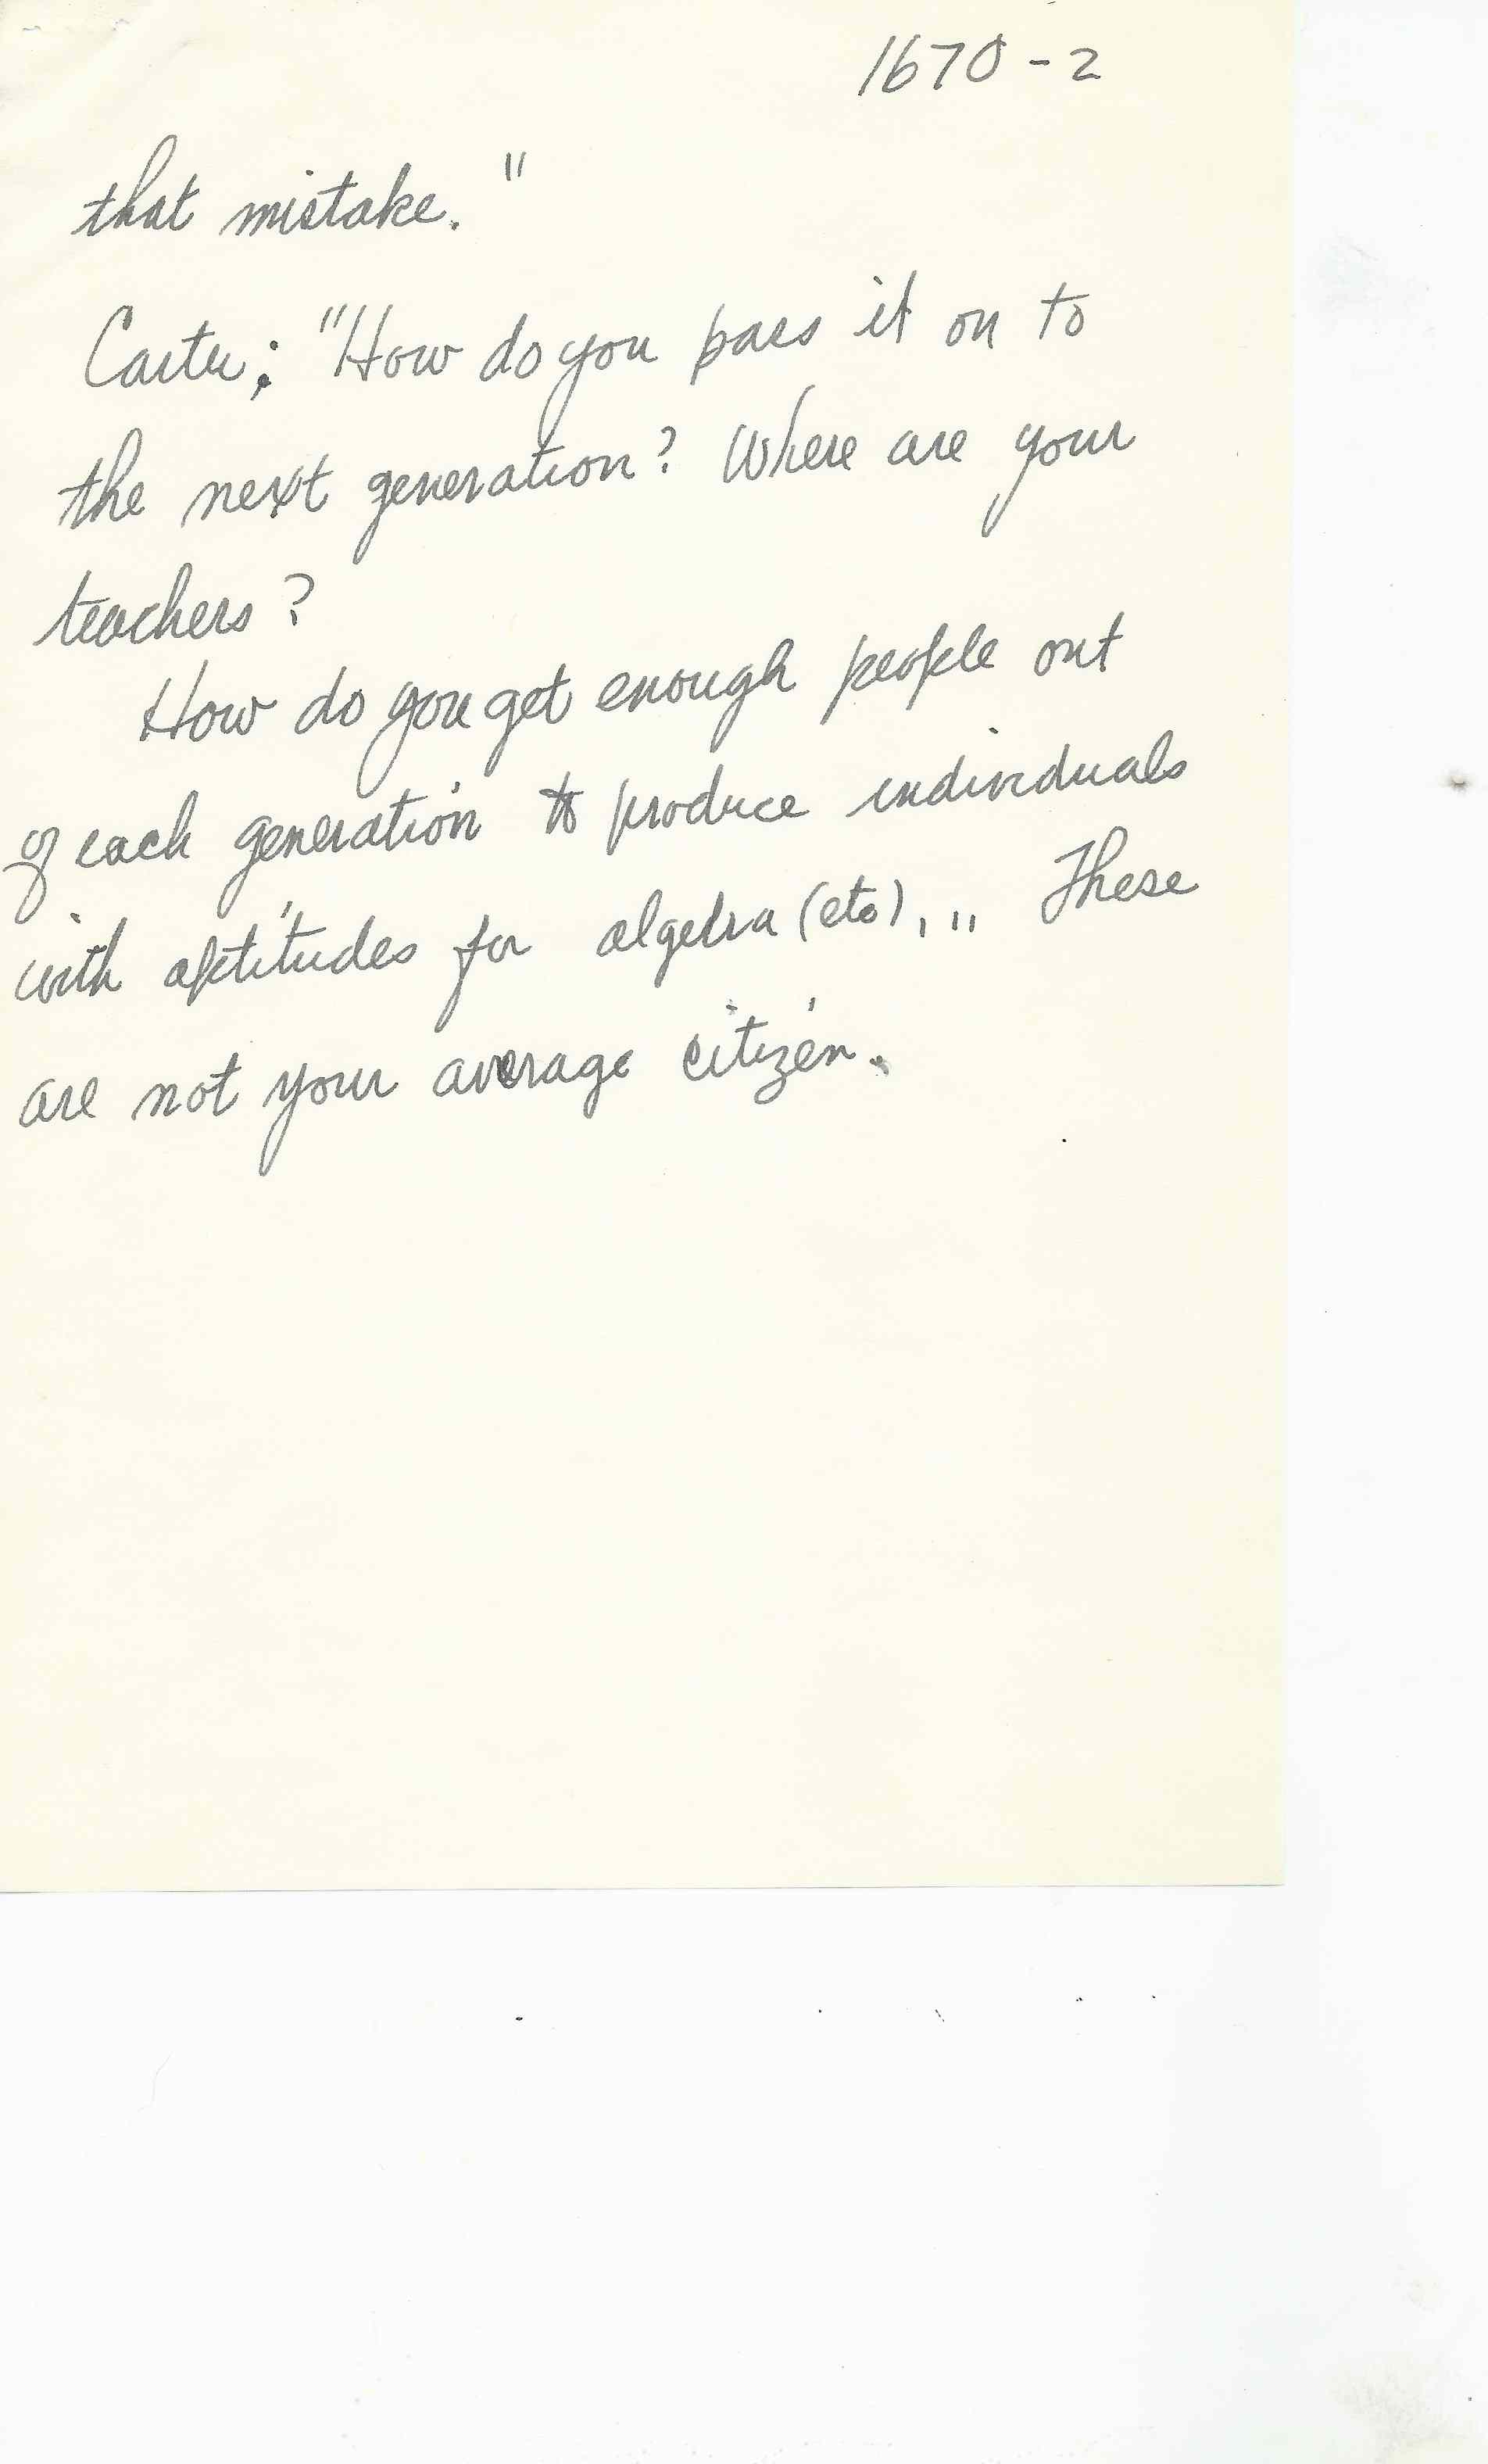 1670-2
that mistake."
Carter: "How do you pass it on to
the next generation? Where are your
teachers?
How do you get enough people out
of each generation to produce individuals
with aptitudes for algebra (etc)... These
are not your average citizen.